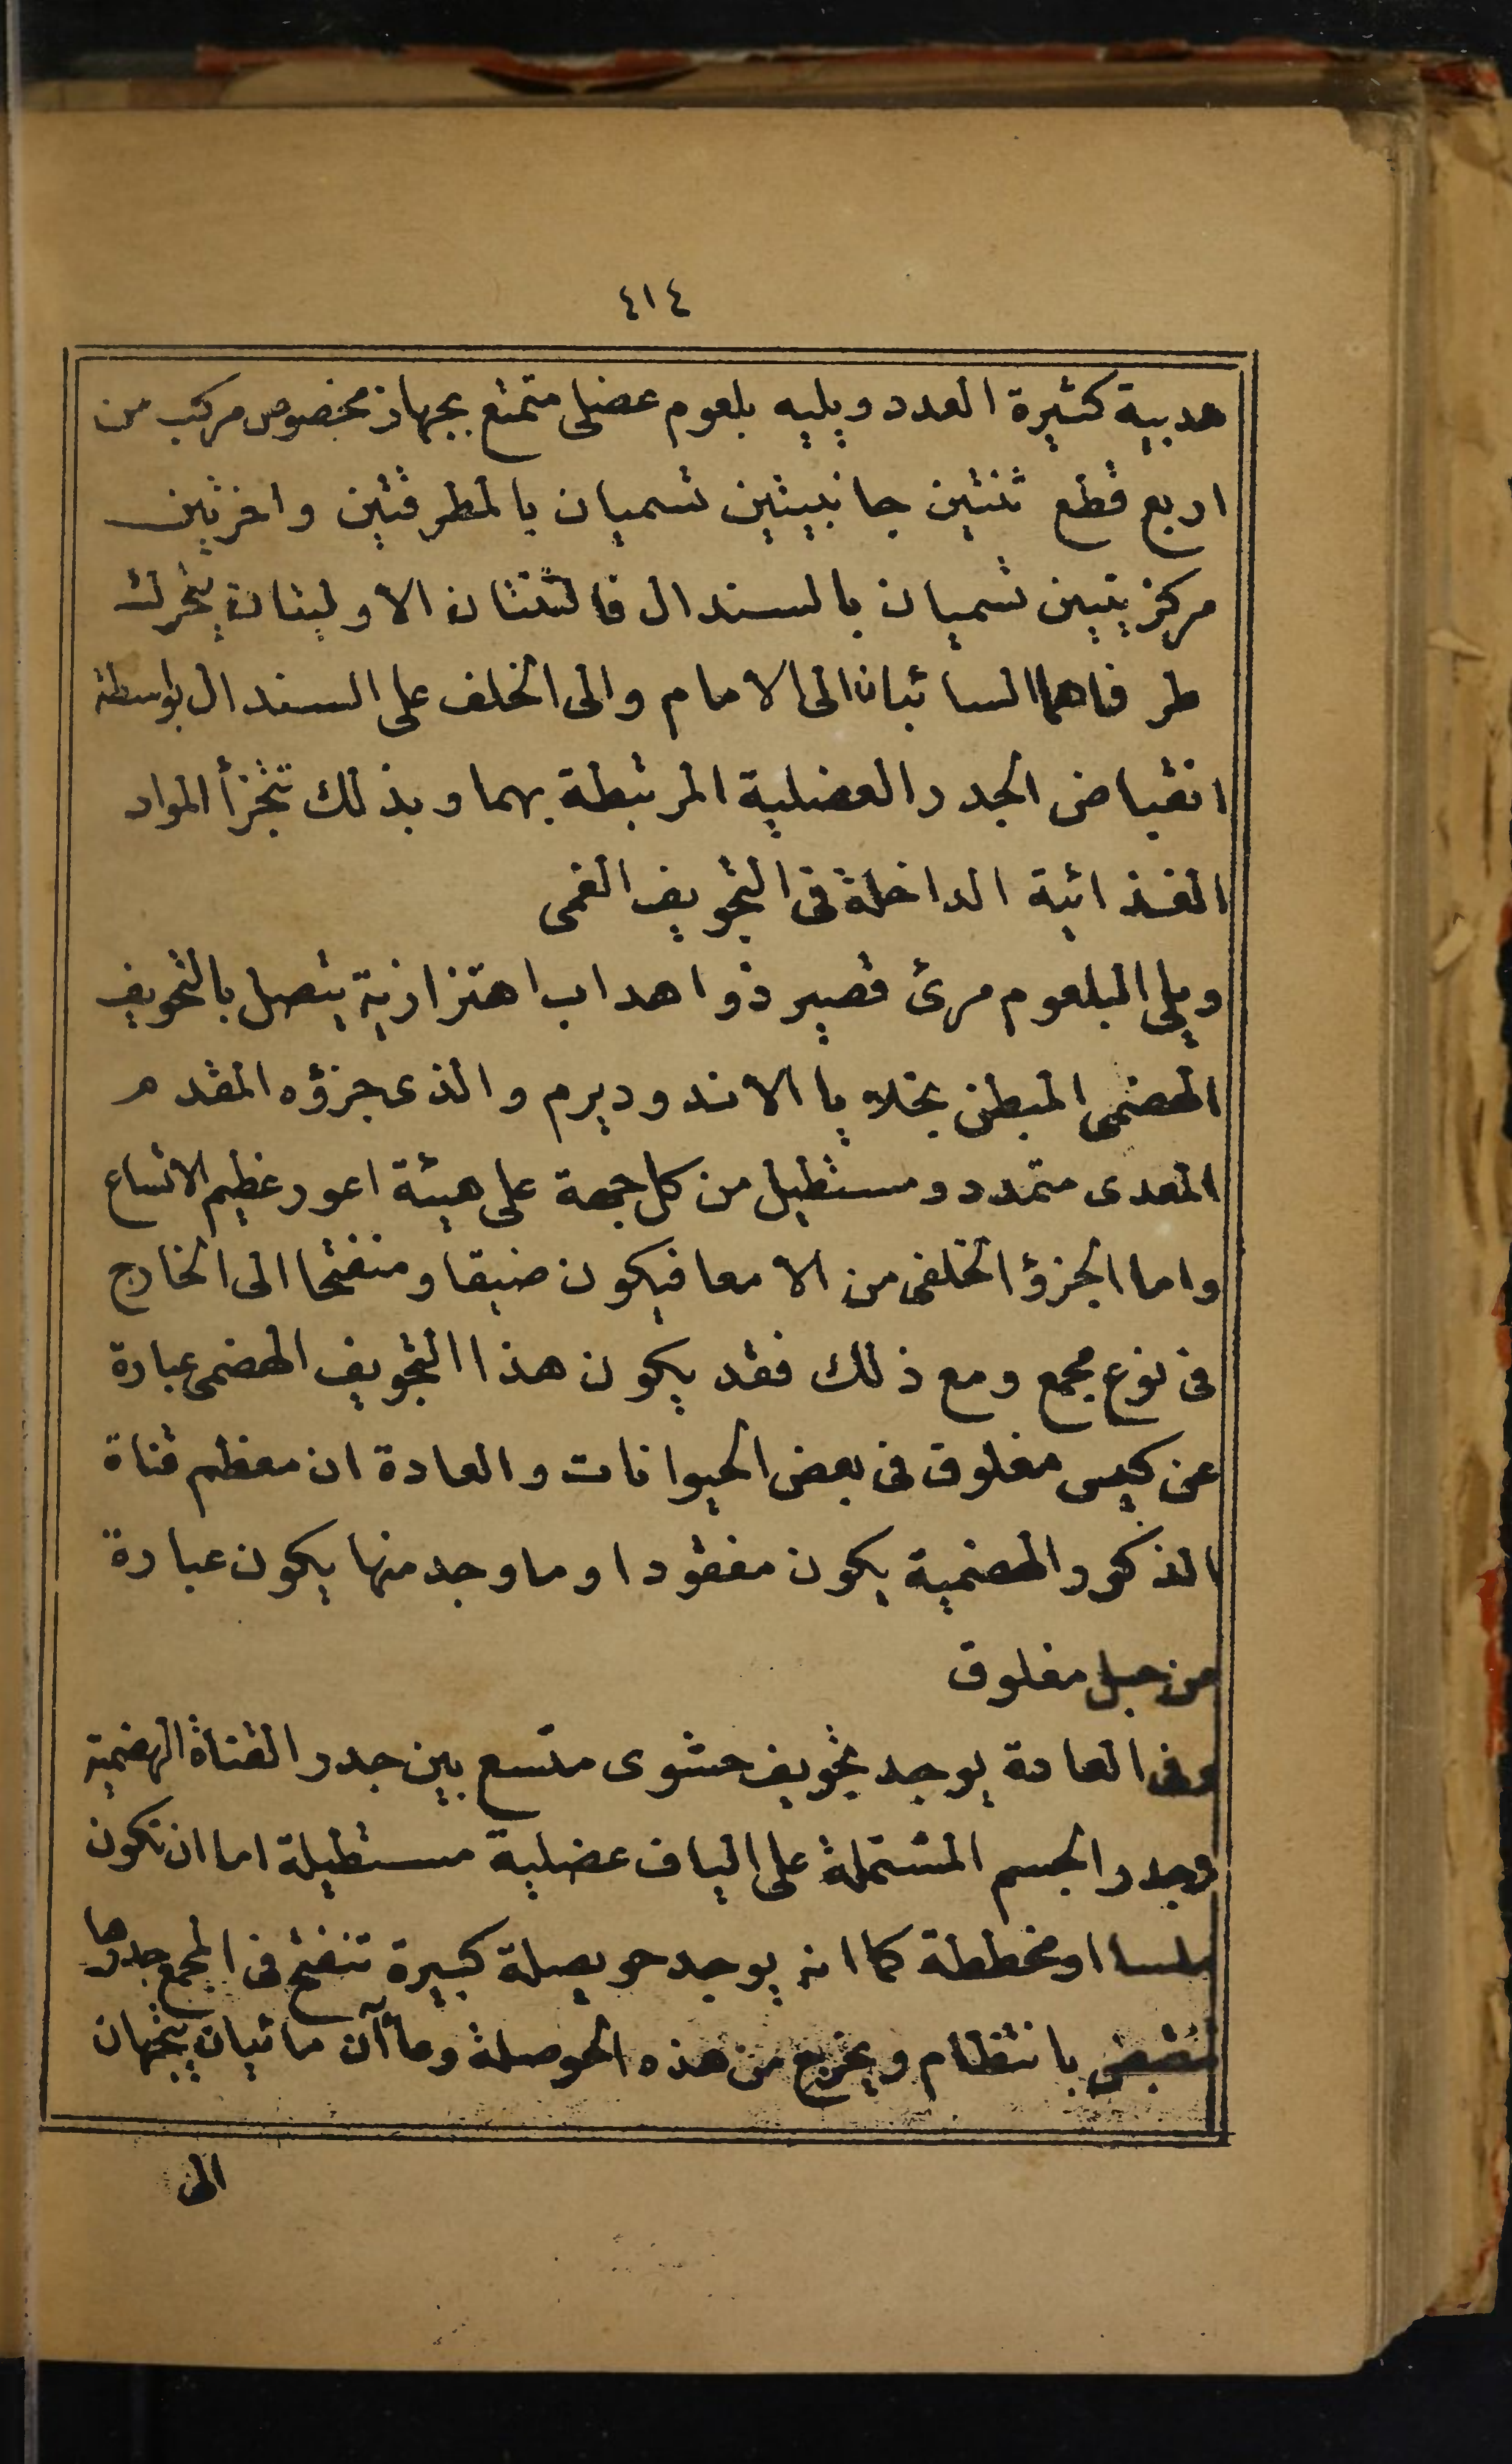 ٤١٤
هدبية كثيرة العدد ويليه بلعوم عضلى متمتع بجهاز مخصوص مركب من
اربع قطع ثنتين جانبيتين تسميان بالمطرقتين واخرتين
مركزيتين تسميان بالسندال فالثنتان الاوليتان يتحرك
طرفاهما السائبان الى الامام والى الخلف على السندال بواسطة
انقباض الجدر العضلية المرتبطة بهما وبذلك تتجزأ المواد
الغذائية الداخلة فى التجويف الفمى
ويلى البلعوم مرئ قصير ذو اهداب اهتزازية يتصل بالتجويف
الهضمى المبطن بخلايا الاندوديرم والذى جزؤه المقدم
المعدى متمدد ومستطيل من كل جهة على هيئة اعور عظيم الاتساع
واما الجزؤ الخلفى من الامعا فيكون ضيقا ومنفتحا الى الخارج
فى نوع مجمع ومع ذلك فقد يكون هذا التجويف الهضمى عبارة
عن كيس مغلوق فى بعض الحيوانات والعادة ان معظم قناة
الذكور الهضمية يكون مفقودا وما وجد منها يكون عبارة
عن حبل مغلوق
وفى العادة يوجد تجويف حشوى متسع بين جدر القناة الهضمية
وجدر الجسم المشتملة على الياف عضلية مستطيلة اما ان تكون
ملسا او مخططة كما انه يوجد حويصلة كبيرة تنفتح فى المجمع جدرها
تنقبض بانتظام ويخرج من هذه الحوصلة وعاآن مائيان يتجهان
الى